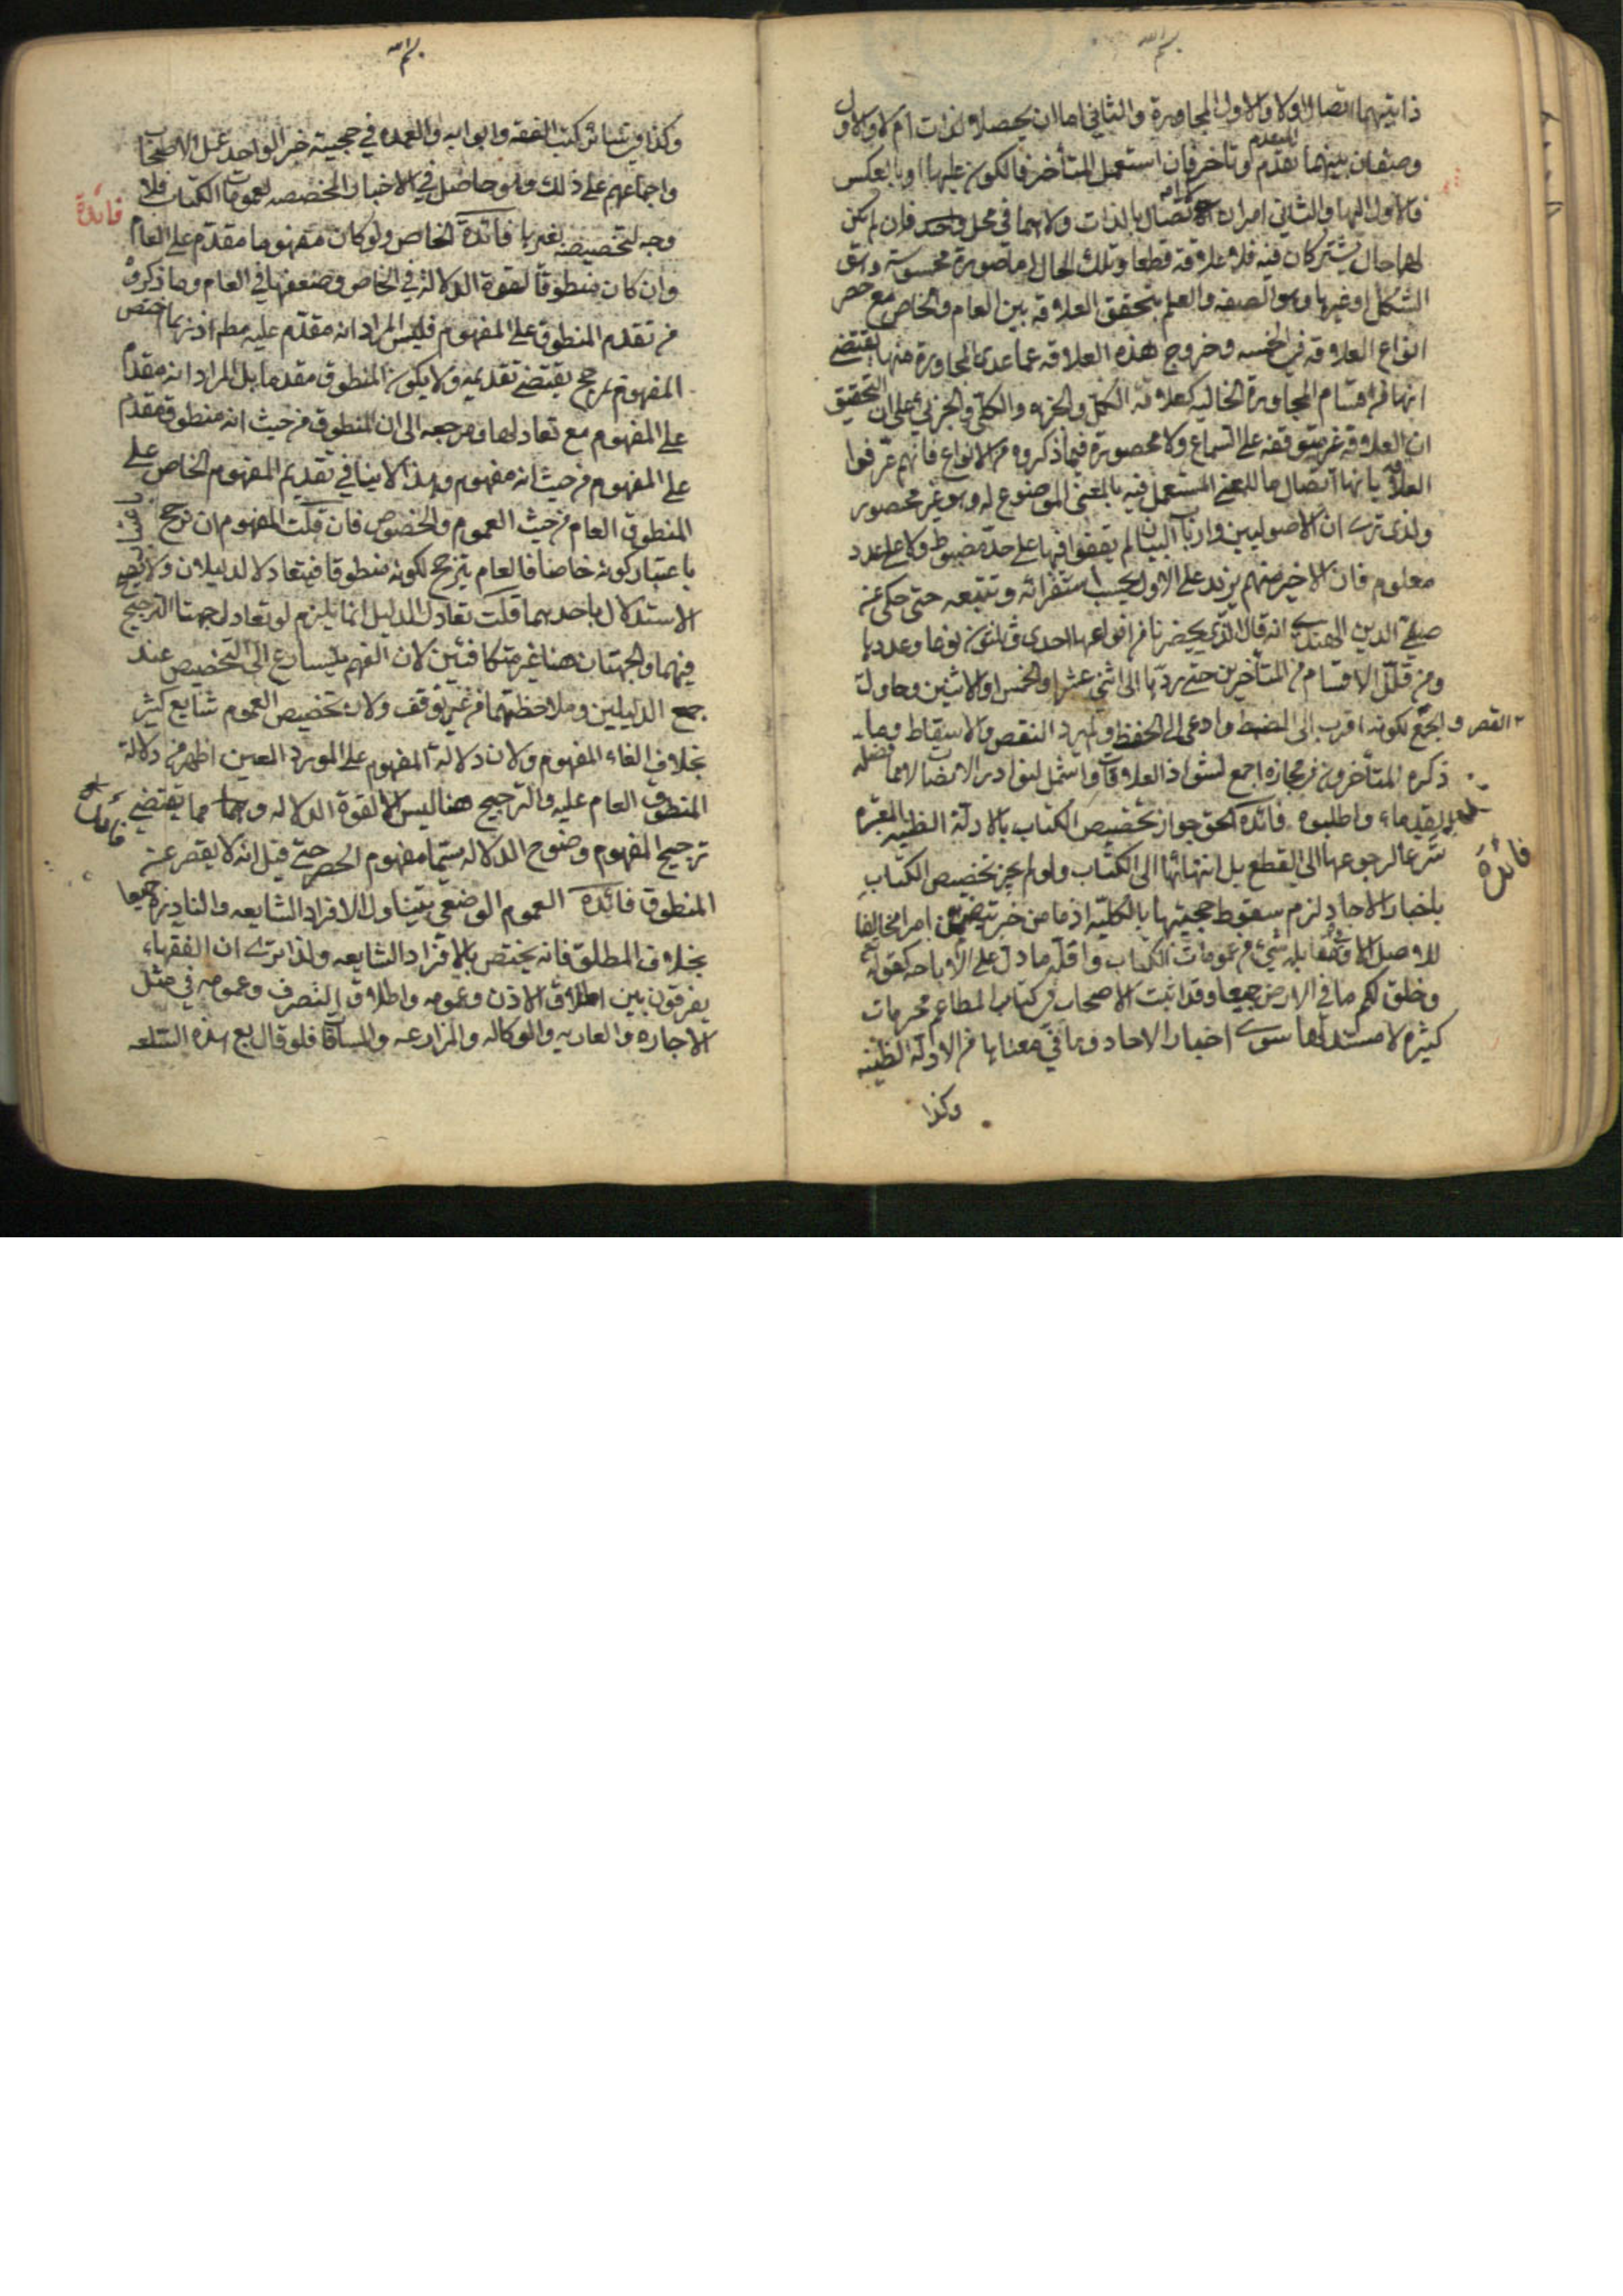 بسم الله
ذاتيهما اتصال اولا والاول المجاورة والثاني اما ان يحصلا لذات ام لا والاول
وصفان بينهما تقدم وتاخر فان استعمل المتأخر فالكون عليها او بالعكس
المتقدم
فالاول اليها والثاني امران لا اتصال بالذات ولا هما في محل واحد فان لم يكن
لهما حال يشتركان فيه فلا علاقة قطعا وتلك الحال اما صورة محسوسة وهى
الشكل او غيرها وهو الصفه والعلم بتحقق العلاقه بين العام والخاص مع حصر
انواع العلاقه في الخمسه وخروج هذه العلاقه عما عدى المجاورة منها يقتضى
انها من اقسام المجاورة الخاليه كعلاقة الكل والجزء والكلى والجزئى على ان التحقيق
ان العلاقة غير متوقفه على السماع ولا محصورة فيما ذكروه من الانواع فانهم عرفوا
العلاقة بانها اتصال ما للمعنى المستعمل فيه بالمعنى الموضوع له وهو غير محصور
ولذى ترى ان الاصوليين وارباب البيان لم يقفوا فيها على حد مضبوط ولا على عدد
معلوم فان الاخير منهم يزيد على الاول بحسب استقرائه وتتبعه حتى حكى عن
صفى الدين الهندى انه قال الذى يحضرنا من انواعها احدى وثلثون نوعا وعددها
ومن قلل الاقسام من المتأخرين حتى ردها الى اثنى عشر او الخمس او الاثنين وحاول
القصر والجمع لكونه اقرب الى الضبط وادعى الى الحفظ ولم يرد النقص والاسقاط وما
ذكره المتأخرون من مجازه اجمع لشواذ العلاقات واشمل لنوادر الاتصالات مما فصله
القدماء واطلبوه فائدة الحق جواز تخصيص الكتاب بالادلة الظنيه المعتبره
شرعا لرجوعها الى القطع بل انتهائها الى الكتاب ولو لم يجز تخصيص الكتاب
فائدة
باخبار الاحاد لزم سقوط حجيتها بالكليه اذ ما من خبر يتضمن امرا مخالفا
للاصل الا وفى مقابله شئ من عمومات الكتاب واقله ما دل على الاباحه كقوله تع
وخلق لكم ما في الارض جميعا وقد اثبت الاصحاب في كتاب المطاعم محرمات
كثيره لا مستند لها سوى اخبار الاحاد وما في معناها من الادله الظنيه
وكذا
بسم الله
وكذا في سائر كتب الفقه وابوابه والعمده في حجية خبر الواحد عمل الاصحاب
واجماعهم على ذلك وهو حاصل في الاخبار المخصصه لعمومات الكتاب فلا
وجه لتخصيصه بغيرها فائدة الخاص ولو كان مفهوما مقدم على العام
فائدة
وان كان منطوقا لقوة الدلالة في الخاص وضعفها في العام وما ذكروه
من تقدم المنطوق على المفهوم فليس المراد انه مقدم عليه مطم اذ ربما اختص
المفهوم بمرجح يقتضى تقديمه ولا يكون المنطوق مقدما بل المراد انه مقدم
على المفهوم مع تعادلهما ومرجعه الى ان المنطوق من حيث انه منطوق مقدم
على المفهوم من حيث انه مفهوم وهذا لا ينافي تقديم المفهوم الخاص على
المنطوق العام من حيث العموم والخصوص فان قلت المفهوم ان ترجح
باعتبار كونه خاصا فالعام يترجح لكونه منطوقا فيتعادلا الدليلان ولا يصح
الاستدلال باحدهما قلت تعادل الدليل انما يلزم لو تعادل جهتا الترجيح
فيهما والجهتان هنا غير متكافئتين لان الفهم يتسارع الى التخصيص عند
جمع الدليلين وملاحظتهما من غير توقف ولان تخصيص العموم شايع كثير
بخلاف الغاء المفهوم ولان دلالة المفهوم على المورد المعين اظهر من دلالة
المنطوق العام عليه والترجيح هنا ليس الا لقوة الدلاله وهما مما يقتضى
ترجيح المفهوم وضوح الدلاله سيما مفهوم الحصر حتى قيل انه لا يقصر عن
فائدة
المنطوق فائدة العموم الوضعى يتناول الافراد الشايعه والنادره جميعا
بخلاف المطلق فانه يختص بالافراد الشايعه ولذا ترى ان الفقهاء
يفرقون بين اطلاق الاذن وعمومه واطلاق التصرف وعمومه في مثل
الاجاره والعاريه والوكاله والمزارعه والمساقاة فلو قال بع هذه السلعه